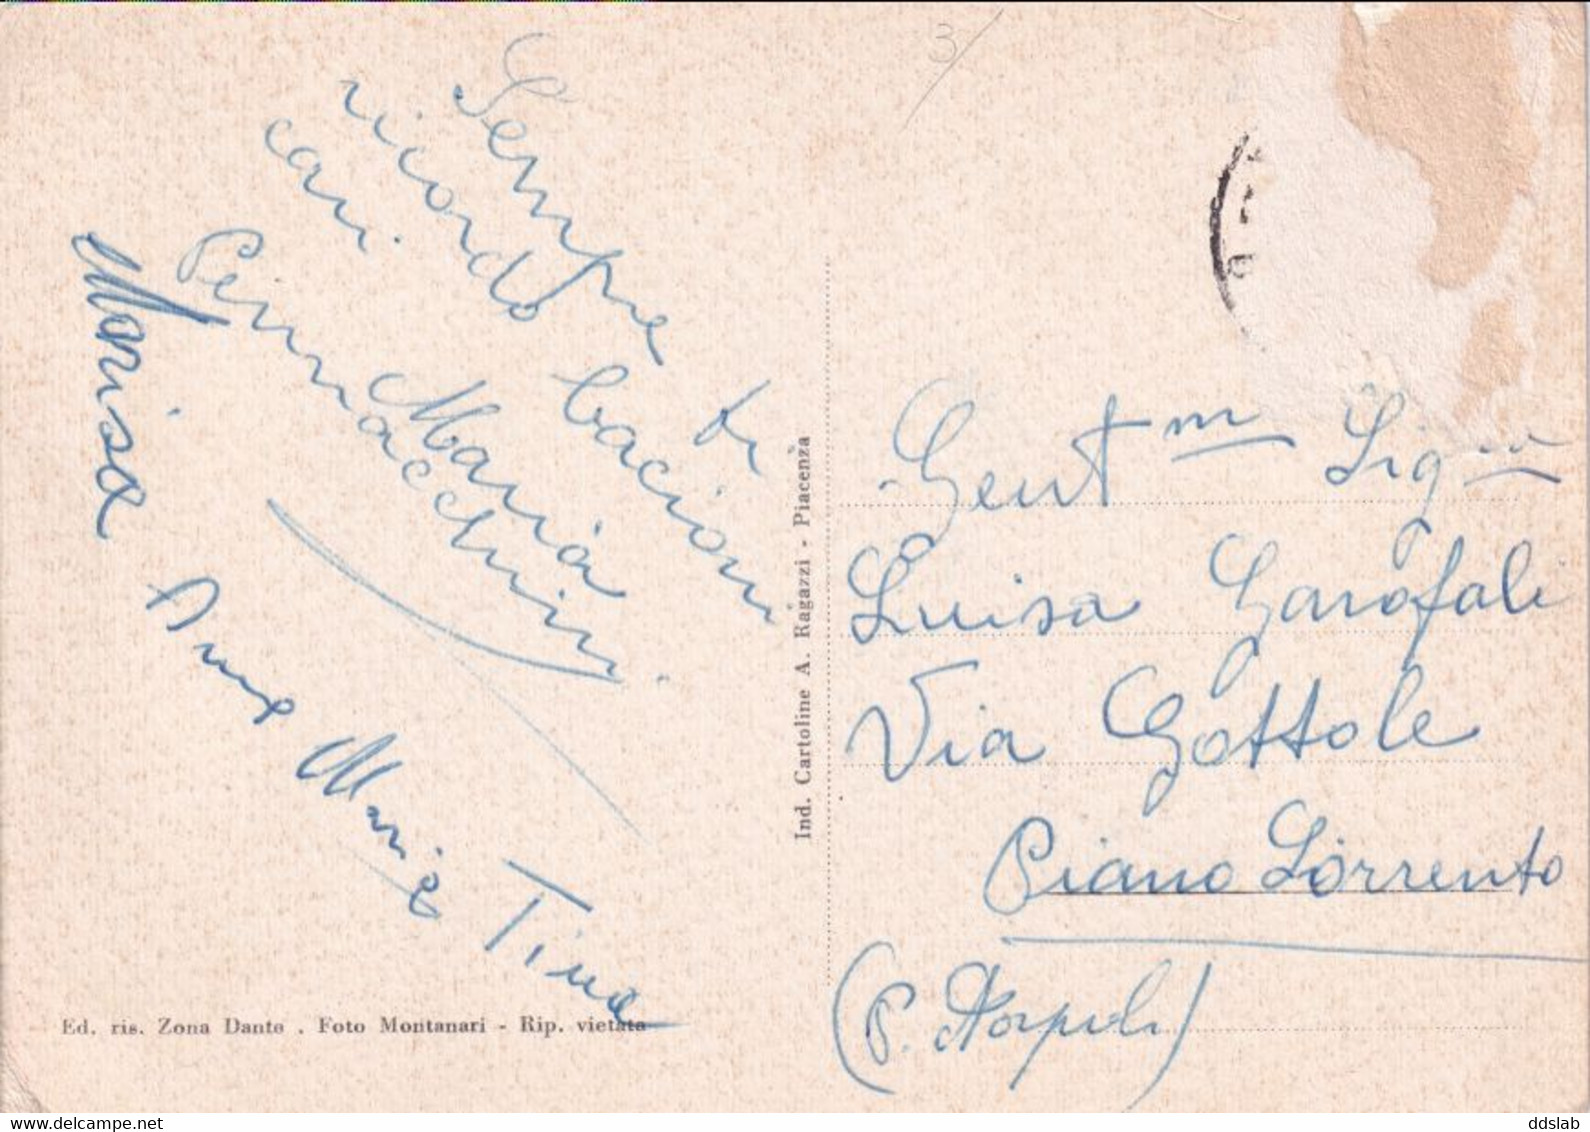 3/
Sempre ti
ricordo bacioni
cari
Maria
Pennacchini
Marisa
Anna Maria Tina
Ed. ris. Zona Dante . Foto Montanari - Rip. vietata
Ind. Cartoline A. Ragazzi - Piacenza
Gent.ma Sig.na
Luisa Garofali
Via Gottole
Piano Sorrento
(P. Napoli)
www.delcampe.net
ddslab